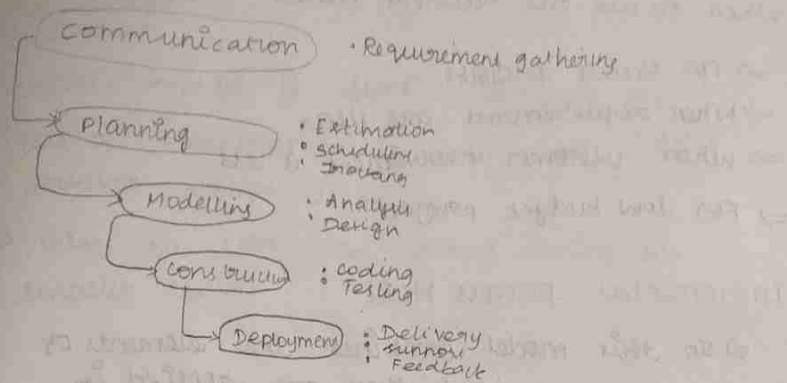 Communication
• Requirement gathering
Planning
• Estimation
• Scheduling
• Tracking
Modelling
• Analysis
• Design
Construction
• Coding
• Testing
Deployment
• Delivery
• Support
• Feedback